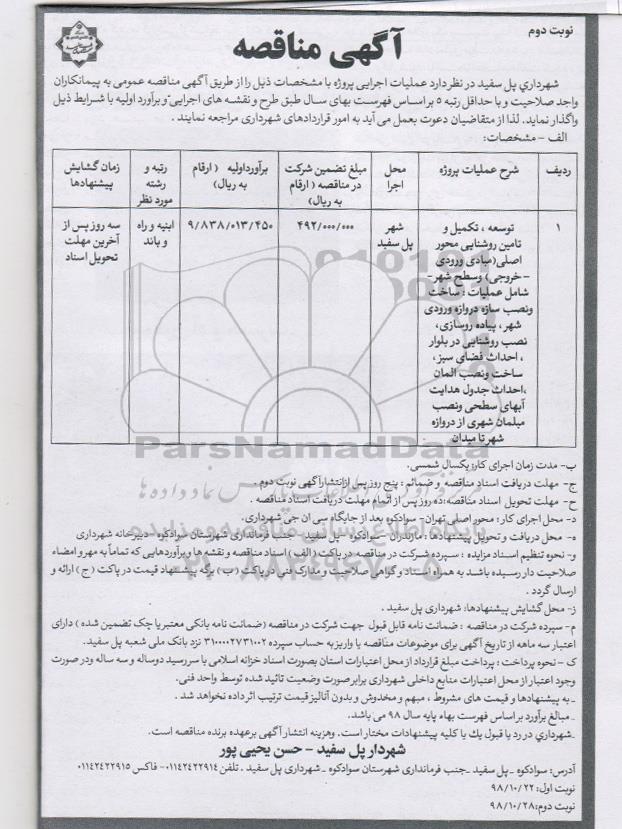 نوبت دوم
آگهی مناقصه
شهرداری پل سفید در نظر دارد عملیات اجرایی پروژه با مشخصات ذیل را از طریق آگهی مناقصه عمومی به پیمانکاران
واجد صلاحیت و با حداقل رتبه ۵ بر اساس فهرست بهای سال طبق طرح و نقشه های اجرایی و برآورد اولیه با شرایط ذیل
واگذار نماید. لذا از متقاضیان دعوت بعمل می آید به امور قراردادهای شهرداری مراجعه نمایند .
الف - مشخصات:
ردیف
شرح عملیات پروژه
محل اجرا
مبلغ تضمین شرکت در مناقصه ( ارقام به ریال)
برآورداولیه ( ارقام به ریال)
رتبه و رشته مورد نظر
زمان گشایش پیشنهادها
۱
توسعه ، تکمیل و
تامین روشنایی محور
اصلی(مبادی ورودی
-خروجی) وسطح شهر-
شامل عملیات : ساخت
ونصب سازه دروازه ورودی
شهر ، پیاده روسازی،
نصب روشنایی در بلوار
، احداث فضای سبز ،
ساخت ونصب المان
،احداث جدول هدایت
آبهای سطحی ونصب
مبلمان شهری از دروازه
شهر تا میدان
شهر پل سفید
۴۹۲/۰۰۰/۰۰۰
۹/۸۳۸/۰۱۳/۴۵۰
ابنیه و راه و باند
سه روز پس از آخرین مهلت تحویل اسناد
ParsNamadData
ب- مدت زمان اجرای کار: یکسال شمسی.
ج- مهلت دریافت اسناد مناقصه و ضمائم : پنج روز پس ازانتشارآگهی نوبت دوم .
ح- مهلت تحویل اسناد مناقصه:ده روز پس از اتمام مهلت دریافت اسناد مناقصه .
د- محل اجرای کار : محور اصلی تهران- سوادکوه بعد از جایگاه سی ان جی شهرداری.
ه- محل دریافت و تحویل پیشنهادها : مازندران -سوادکوه- پل سفید - جنب فرمانداری شهرستان سوادکوه - دبیرخانه شهرداری
و- نحوه تنظیم اسناد مزایده : سپرده شرکت در مناقصه در پاکت (الف ) اسناد مناقصه و نقشه ها و برآوردهایی که تماماً به مهر و امضاء
صلاحیت دار رسیده باشد به همراه اسناد و گواهی صلاحیت و مدارک فنی در پاکت (ب ) برگه پیشنهاد قیمت در پاکت (ج ) ارائه و
ارسال گردد .
ز- محل گشایش پیشنهادها: شهرداری پل سفید .
م- سپرده شرکت در مناقصه : ضمانت نامه قابل قبول جهت شرکت در مناقصه (ضمانت نامه بانکی معتبر یا چک تضمین شده ) دارای
اعتبار سه ماهه از تاریخ آگهی برای موضوعات مناقصه یا واریز به حساب سپرده ۳۱۰۰۰۰۲۷۳۱۰۰۲ نزد بانک ملی شعبه پل سفید.
ک - نحوه پرداخت : پرداخت مبلغ قرارداد از محل اعتبارات استان بصورت اسناد خزانه اسلامی با سررسید دوساله و سه ساله ودر صورت
وجود اعتبار از محل اعتبارات منابع داخلی شهرداری برابر صورت وضعیت تائید شده توسط واحد فنی.
ـ به پیشنهادها و قیمت های مشروط ، مبهم و مخدوش و بدون آنالیز قیمت ترتیب اثر داده نخواهد شد .
ـ مبالغ برآورد بر اساس فهرست بهاء پایه سال ۹۸ می باشد.
ـ شهرداری در رد یا قبول یك یا کلیه پیشنهادات مختار است. وهزینه انتشار آگهی برعهده برنده مناقصه است.
شهردار پل سفید - حسن یحیی پور
آدرس: سوادکوه ـ پل سفید ـ جنب فرمانداری شهرستان سوادکوه ـ شهرداری پل سفید . تلفن ۰۱۱۴۲۴۲۲۹۱۴- فاکس ۰۱۱۴۲۴۲۲۹۱۵
نوبت اول: ۹۸/۱۰/۲۲
نوبت دوم: ۹۸/۱۰/۲۸